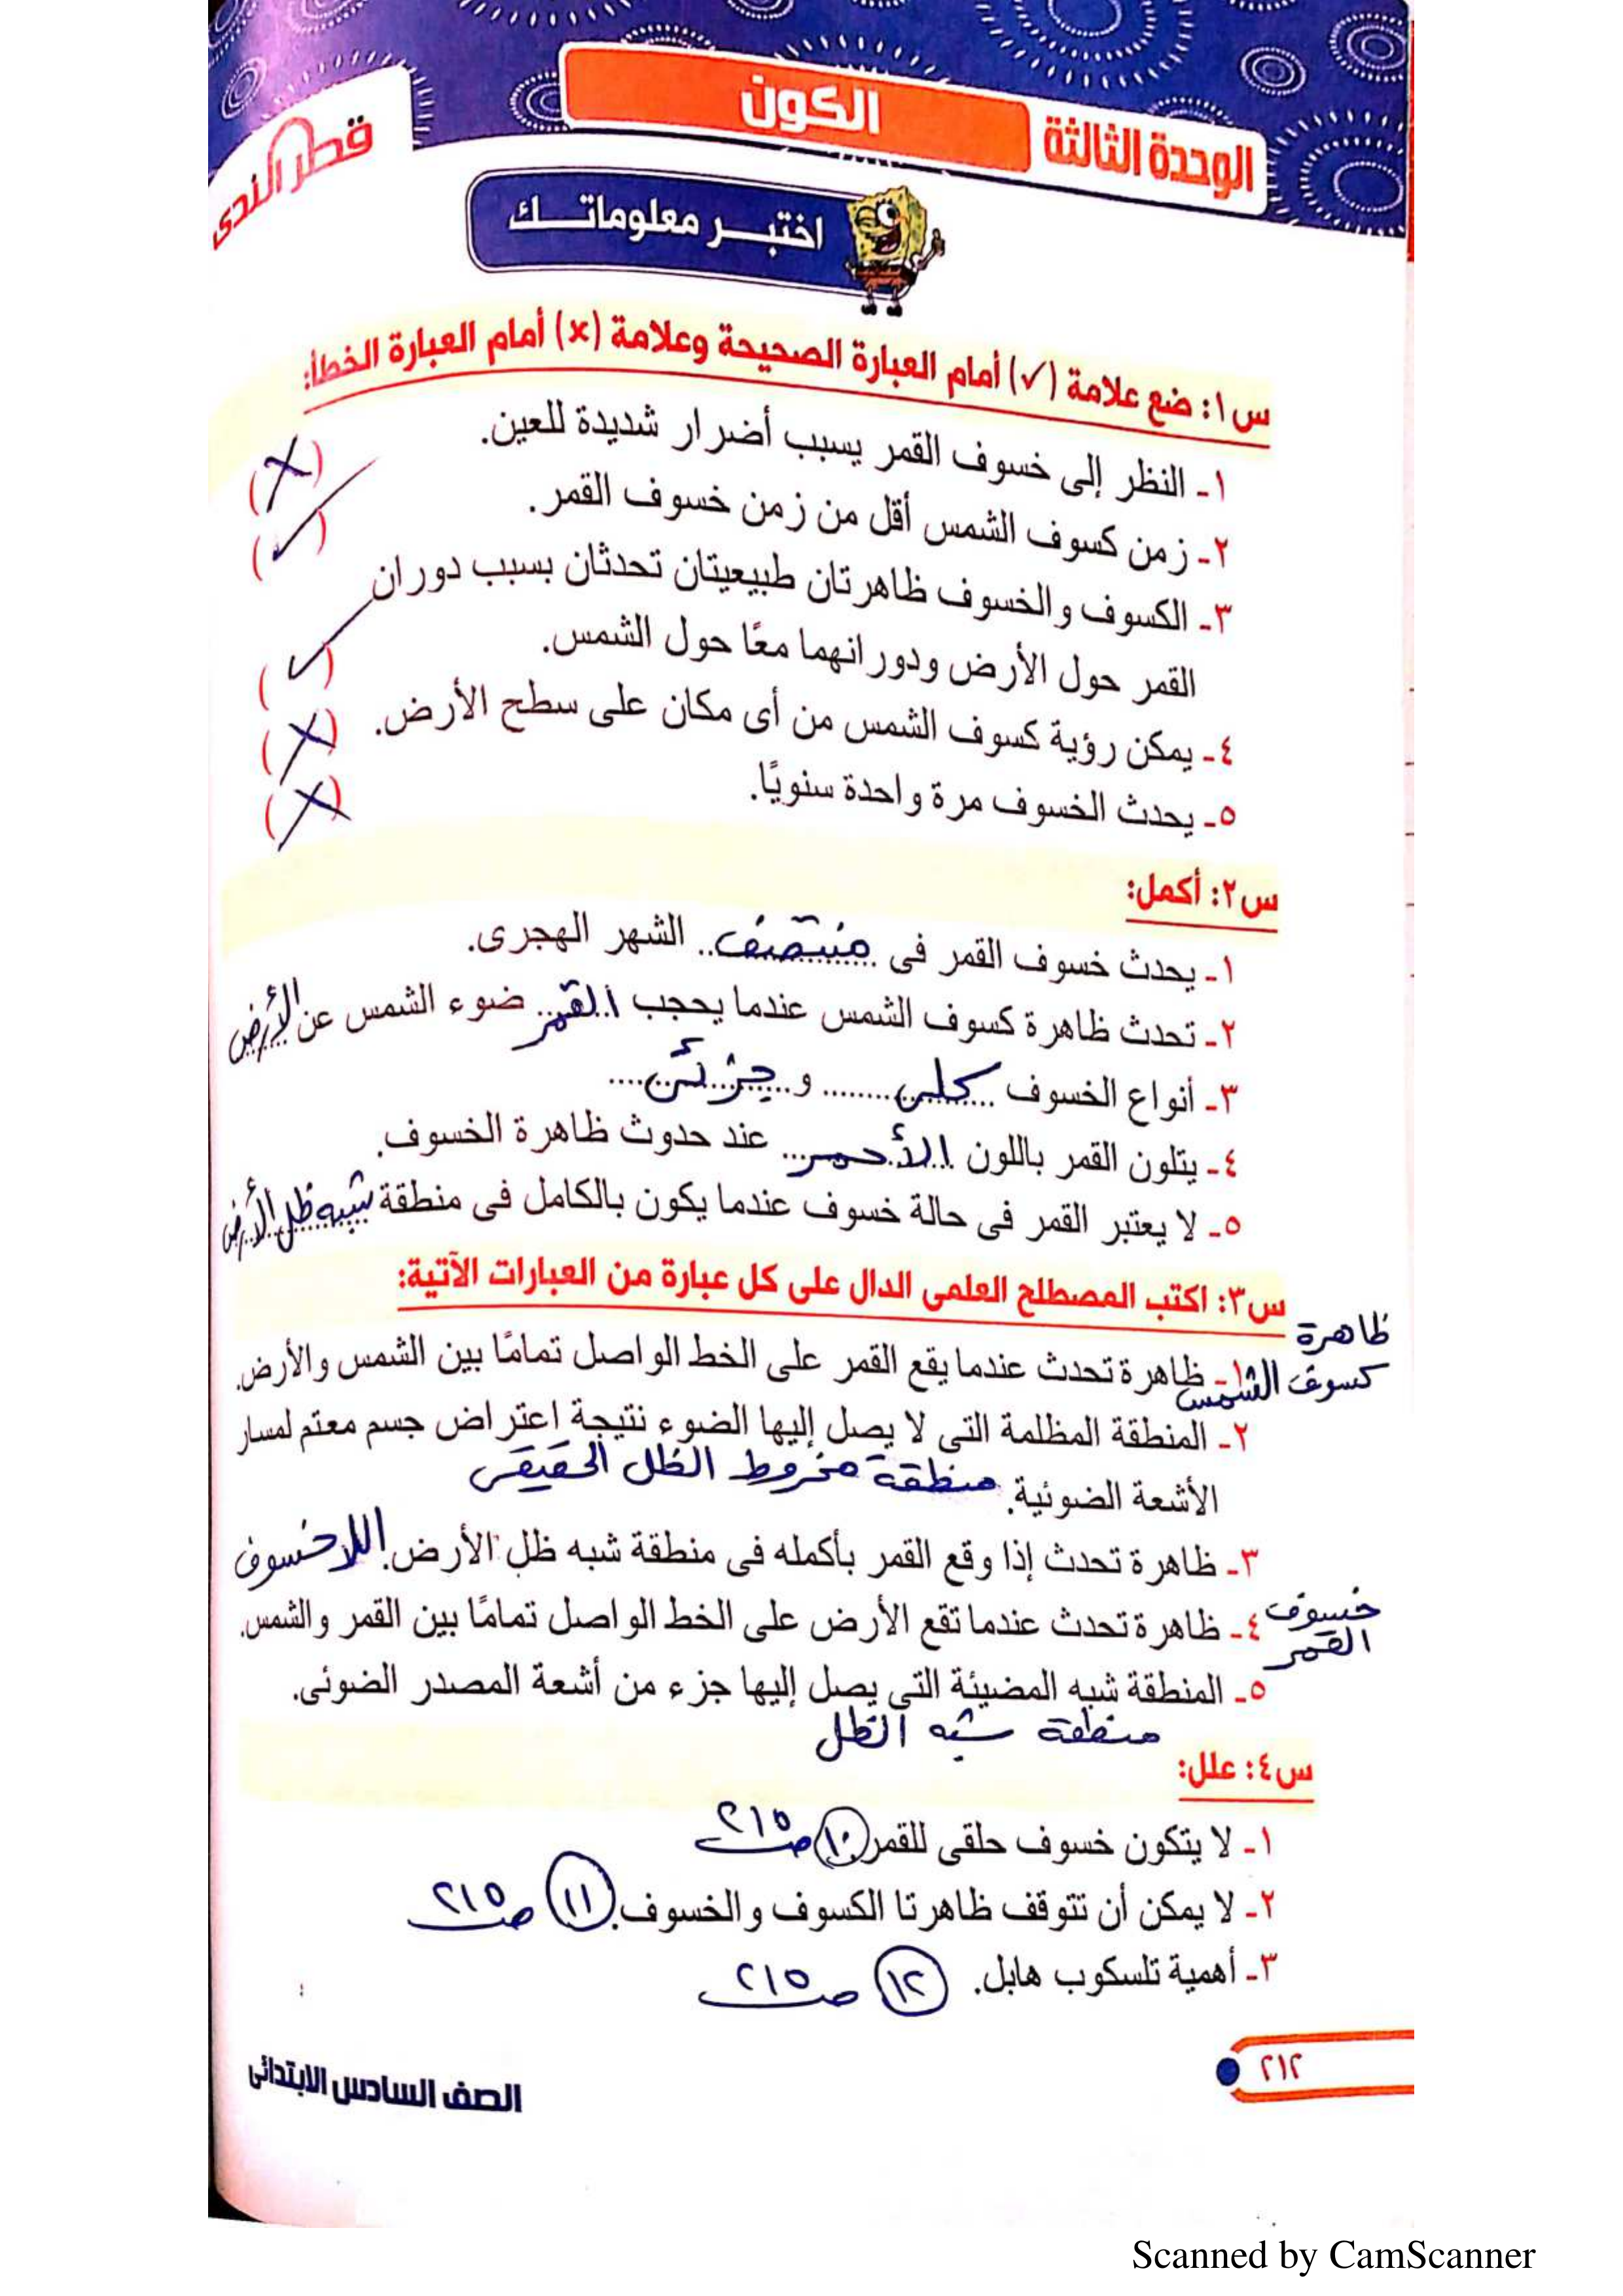 قطر الندى
الوحدة الثالثة الكون
اختبر معلوماتك
س١: ضع علامة (✓) أمام العبارة الصحيحة وعلامة (×) أمام العبارة الخطأ:
١- النظر إلى خسوف القمر يسبب أضرار شديدة للعين. (×)
٢- زمن كسوف الشمس أقل من زمن خسوف القمر. (✓)
٣- الكسوف والخسوف ظاهرتان طبيعيتان تحدثان بسبب دوران
القمر حول الأرض ودورانهما معًا حول الشمس. (✓)
٤- يمكن رؤية كسوف الشمس من أى مكان على سطح الأرض. (×)
٥- يحدث الخسوف مرة واحدة سنويًا. (×)
س٢: أكمل:
١- يحدث خسوف القمر فى منتصف الشهر الهجرى.
٢- تحدث ظاهرة كسوف الشمس عندما يحجب القمر ضوء الشمس عن الأرض
٣- أنواع الخسوف كلى و جزئى
٤- يتلون القمر باللون الأحمر عند حدوث ظاهرة الخسوف.
٥- لا يعتبر القمر فى حالة خسوف عندما يكون بالكامل فى منطقة شبه ظل الأرض
س٣: اكتب المصطلح العلمى الدال على كل عبارة من العبارات الآتية:
ظاهرة
كسوف الشمس
١- ظاهرة تحدث عندما يقع القمر على الخط الواصل تمامًا بين الشمس والأرض.
٢- المنطقة المظلمة التى لا يصل إليها الضوء نتيجة اعتراض جسم معتم لمسار
الأشعة الضوئية. منطقة مخروط الظل الحقيقى
٣- ظاهرة تحدث إذا وقع القمر بأكمله فى منطقة شبه ظل الأرض. اللاخسوف
خسوف
القمر
٤- ظاهرة تحدث عندما تقع الأرض على الخط الواصل تمامًا بين القمر والشمس.
٥- المنطقة شبه المضيئة التى يصل إليها جزء من أشعة المصدر الضوئى.
منطقة شبه الظل
س٤: علل:
١- لا يتكون خسوف حلقى للقمر ١٠ ص ٢١٥
٢- لا يمكن أن تتوقف ظاهرتا الكسوف والخسوف. ١١ ص ٢١٥
٣- أهمية تلسكوب هابل. ١٢ ص ٢١٥
٢١٢
الصف السادس الابتدائى
Scanned by CamScanner